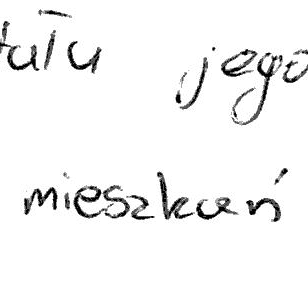 tułu jego
mieszkań